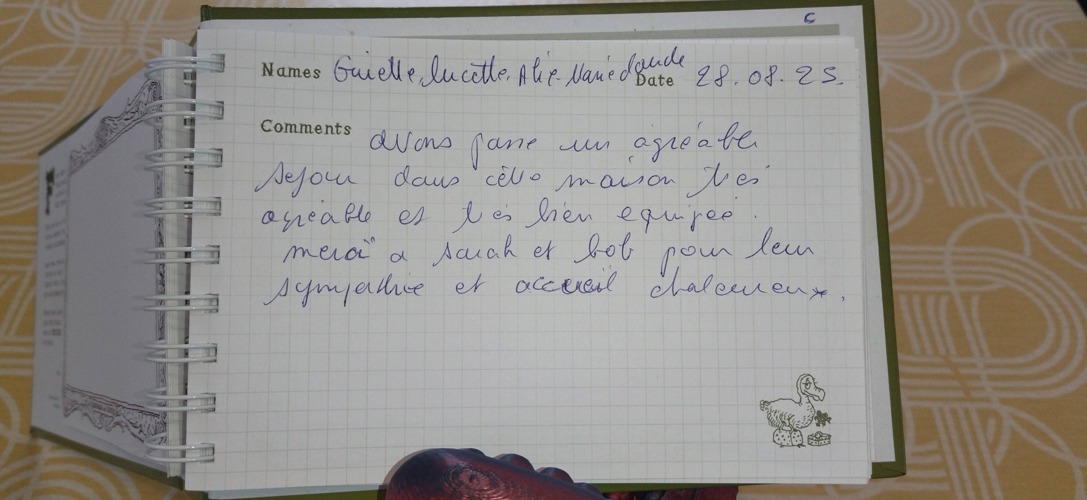 Names Guiette, lucette, Alie Marie claude Date 28.08.25.
Comments avons passe un agréable
sejour dans cette maison très
agréable et très bien equipée.
merci a sarah et bob pour leur
sympathie et accueil chaleureux.